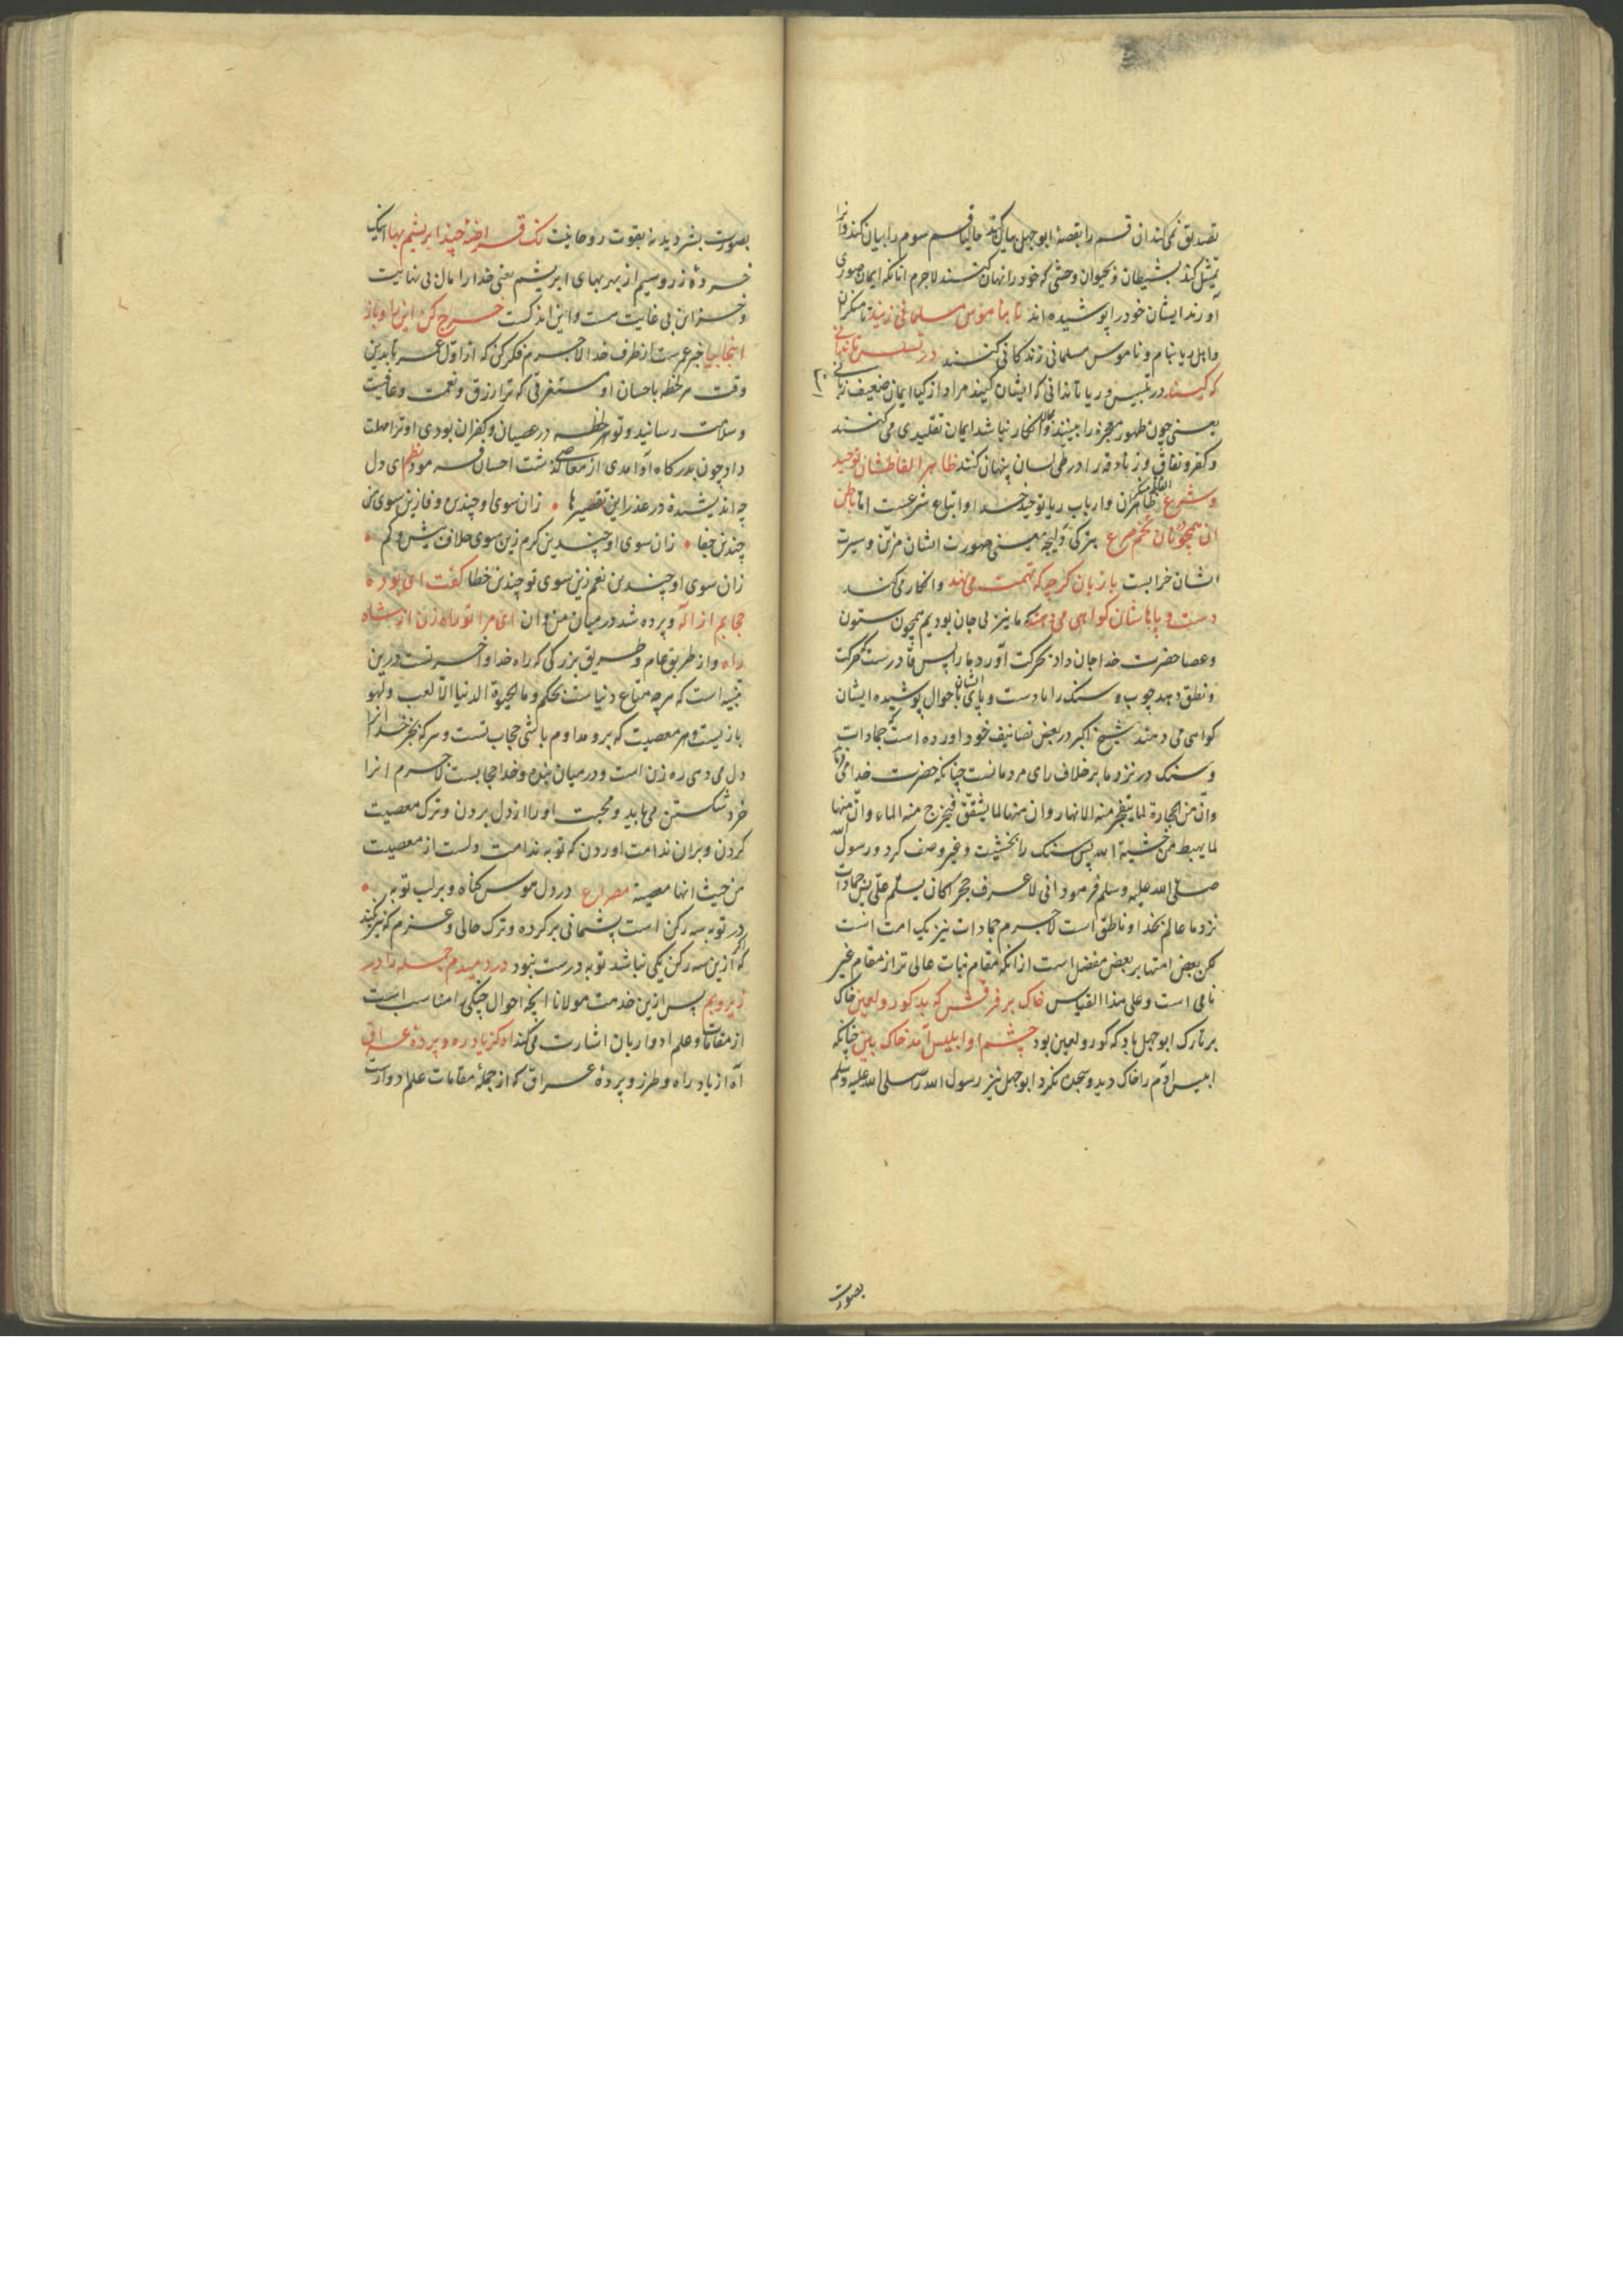 تصدیق نمی‌کند ان قسم را بقصهٔ ابو جهل بیان کند حالیا قسم سوم را بیان کند و انرا
تمثل کند بشیطان و بحیوان وحشی که خود را نهان کنند لاجرم انانکه ایمان صوری
آورند ایشان خود را پوشیده اند تا بناموس مسلمانی زیند تا منکران
واهل ریا بنام و ناموس مسلمانی زندکانی کنند در تسلس تا ندانی
که کیند در تلبیس و ریا تا ندانی که ایشان کیند مراد از کیا ایمان ضعیف
یعنی چون ظهور معجزه را بینند و مجال انکار نباشد ایمان تقلیدی می کنند
و کفر و نفاق و زنادقه را در طی لسان پنهان کنند ظاهر الفاظشان توحید
و شرع ظاهر ان وارباب ریا توحید خدا و اتباع شرعست اما باطن
ان همچو نان تخم صرع بزرکی و لیجه یعنی صورت ایشان مزین و سیرت
ایشان خرابست با زبان کر چه که تهمت می نهد و انکار می کند
دست و پاهاشان کواهی می دهند که ما نیز بی جان بودیم همچون ستون
و عصا حضرت خدا جان داد بحرکت آورد ما را پس قادرست که حرکت
و نطق دهد چوب و سنک را ما دست و پای ایشان باحوال پوشیده ایشان
کواهی می دهند شیخ اکبر در بعض تصانیف خود اورده است که جمادات
و سنک در نزد ما بر خلاف رای مردمانست چنانکه حضرت خدا می فرماید
وان من الحجارة لما یتفجر منه الانهار وان منها لما یشقق فیخرج منه الماء وان منها
لما یهبط من خشیة الله پس سنک را بخشیت و غیر وصف کرد و رسول الله
صلی الله علیه وسلم فرمود انی لاعرف حجرا کان یسلم علی پس جمادات
نزد ما عالم بخدا و ناطق است لاجرم جمادات نیز یک امت است
لکن بعض امتها بر بعض مفضل است از انکه مقام نبات عالی تر از مقام غیر
نامی است و علی هذا القیاس خاک بر فرقش که بد کور و لعین خاک
بر تارک ابو جهل باد که کور و لعین بود چشم او ابلیس آمد خاک بین چنانکه
ابلیس آدم را خاک دید و سجده نکرد ابو جهل نیز رسول الله را صلی الله علیه وسلم
بصورت
بصورت بشر دید نه بقوت روحانیت نک قراضهٔ چند ابریشم بها اینک
خردهٔ زر و سیم از بهر بهای ابریشم یعنی خدا را مال بی نهایت
و خزاین بی غایت هست و این اندکست خرج کن این را و باز
اینجا بیا خبر عمرست از طرف خدا لاجرم فکر کن که از اول عمر تا بدین
وقت هر لحظه باحسان او مستغرقی که ترا رزق و نعمت و عافیت
و سلامت رسانید و تو هر لحظه در عصیان و کفران بودی او ترا مهلت
داد چون بدرکاه او آمدی از معاصی کذشت احسان فرمود نظم ای دل
چه اندیشیدهٔ در عذر این تقصیرها • زان سوی او چندین وفا زین سوی من
چندین جفا • زان سوی او چندین کرم زین سوی خلاف بیش و کم •
زان سوی او چندین نعم زین سوی تو چندین خطا کفت ای بوده
حجابم از اله و پرده شد در میان من و ان ای مرا تو راه زن از شاه
راه و از طریق عام و طریق بزرکی که راه خدا و آخرتست درین
تنبیه است که هر چه متاع دنیاست بحکم و ما الحیوة الدنیا الا لعب ولهو
بازیست و هر معصیت که برو مداوم باشی حجاب تست و هر که بجز خدا انرا
دل می دهی ره زن است و در میان بنده و خدا حجابست لاجرم انرا
خرد شکستن می باید و محبت او را از دل بردن و ترک معصیت
کردن و بران ندامت اوردن که توبه ندامت دلست از معصیت
من حیث انها معصیة مصراع در دل هوس کناه و بر لب توبه •
در توبه سه رکن است پشیمانی بر کرده و ترک حالی و عزم که نیز نکند
که اکر ازین سه رکن یکی نباشد توبه درست نبود در دمیدم جمله را در
زیر و بم پس ازین خدمت مولانا انچه احوال چنکی را مناسب است
از مقامات و علم ادوار بان اشارت می کند آه کز یاد ره و پردهٔ عراق
آه از یاد راه و طرز و پردهٔ عراق که از جملهٔ مقامات علم ادوارست